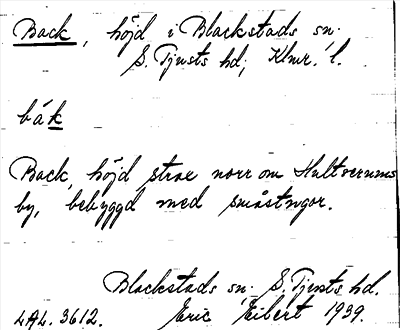 Back, höjd i Blackstads sn.
S. Tjusts hd, Klmr. l.
båk
Back, höjd strax norr om Hultserums
by, bebyggd med småstugor.
Blackstads sn. S. Tjusts hd.
LAL. 3612. Eric Eibert 1939.